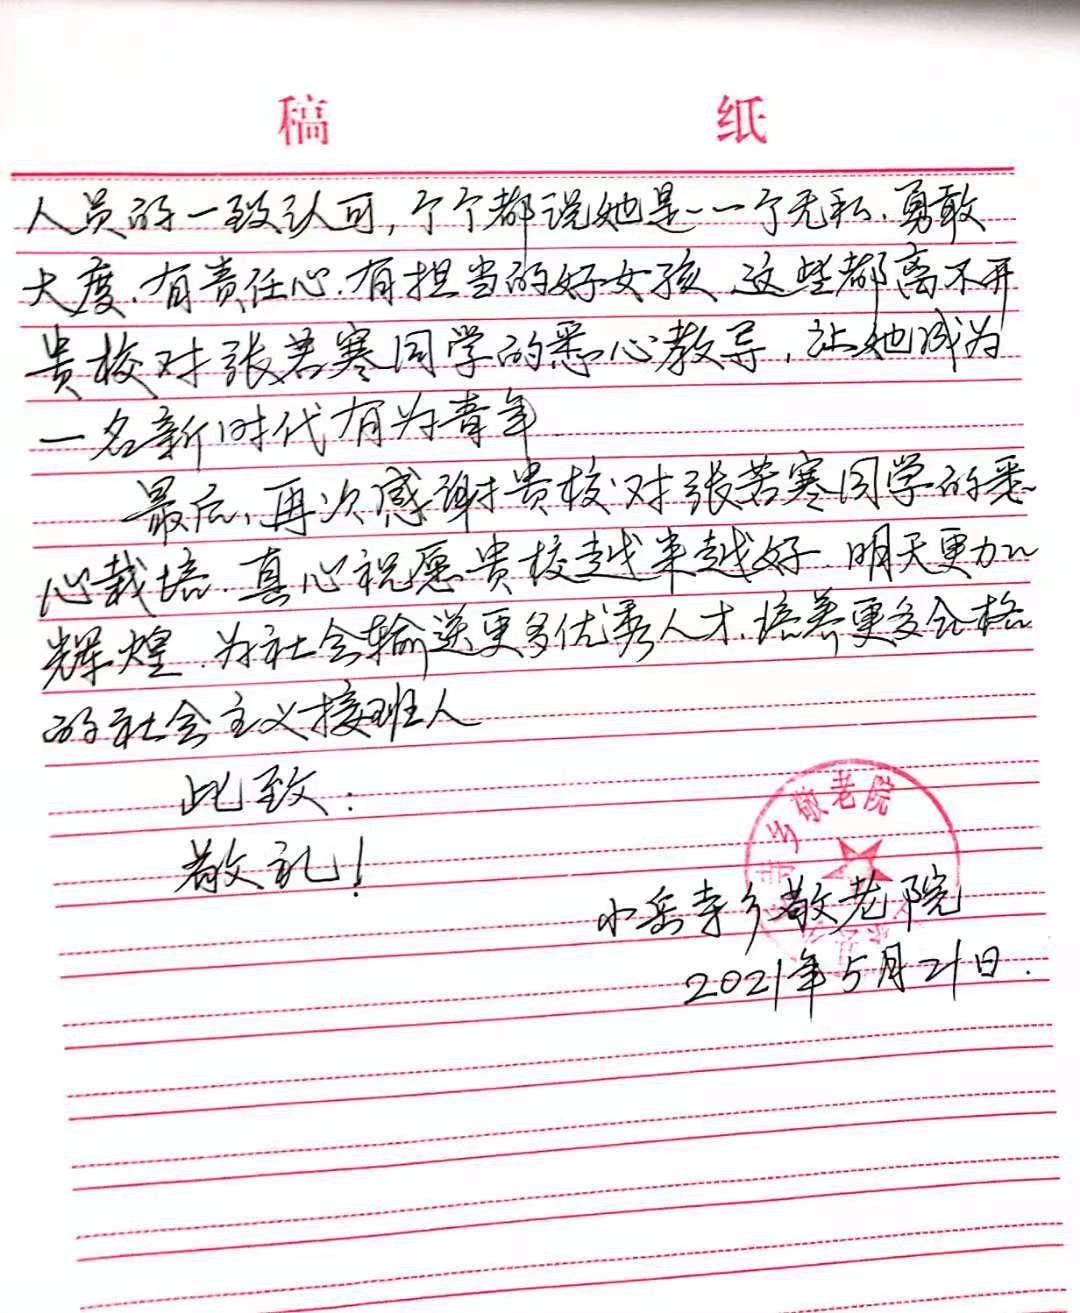 稿 纸
人员的一致认可，个个都说她是一个无私、勇敢
大度、有责任心、有担当的好女孩 这些都离不开
贵校对张若寒同学的悉心教导，让她成为
一名新时代有为青年
最后，再次感谢贵校对张若寒同学的悉
心栽培.真心祝愿贵校越来越好.明天更加
辉煌.为社会输送更多优秀人才.培养更多合格
的社会主义接班人
此致：
敬礼！
乡敬老院
小岳寺乡敬老院
2021年5月21日.